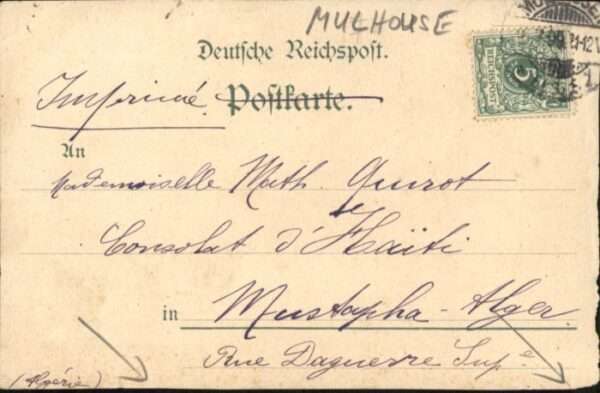 MULHOUSE
Deutsche Reichspost.
Imprimé. Postkarte.
An
Mademoiselle Math. Quirot
Consolat d'Haïti
in Mustapha-Alger.
Rue Daguerre Sup.e
(Algérie)
5